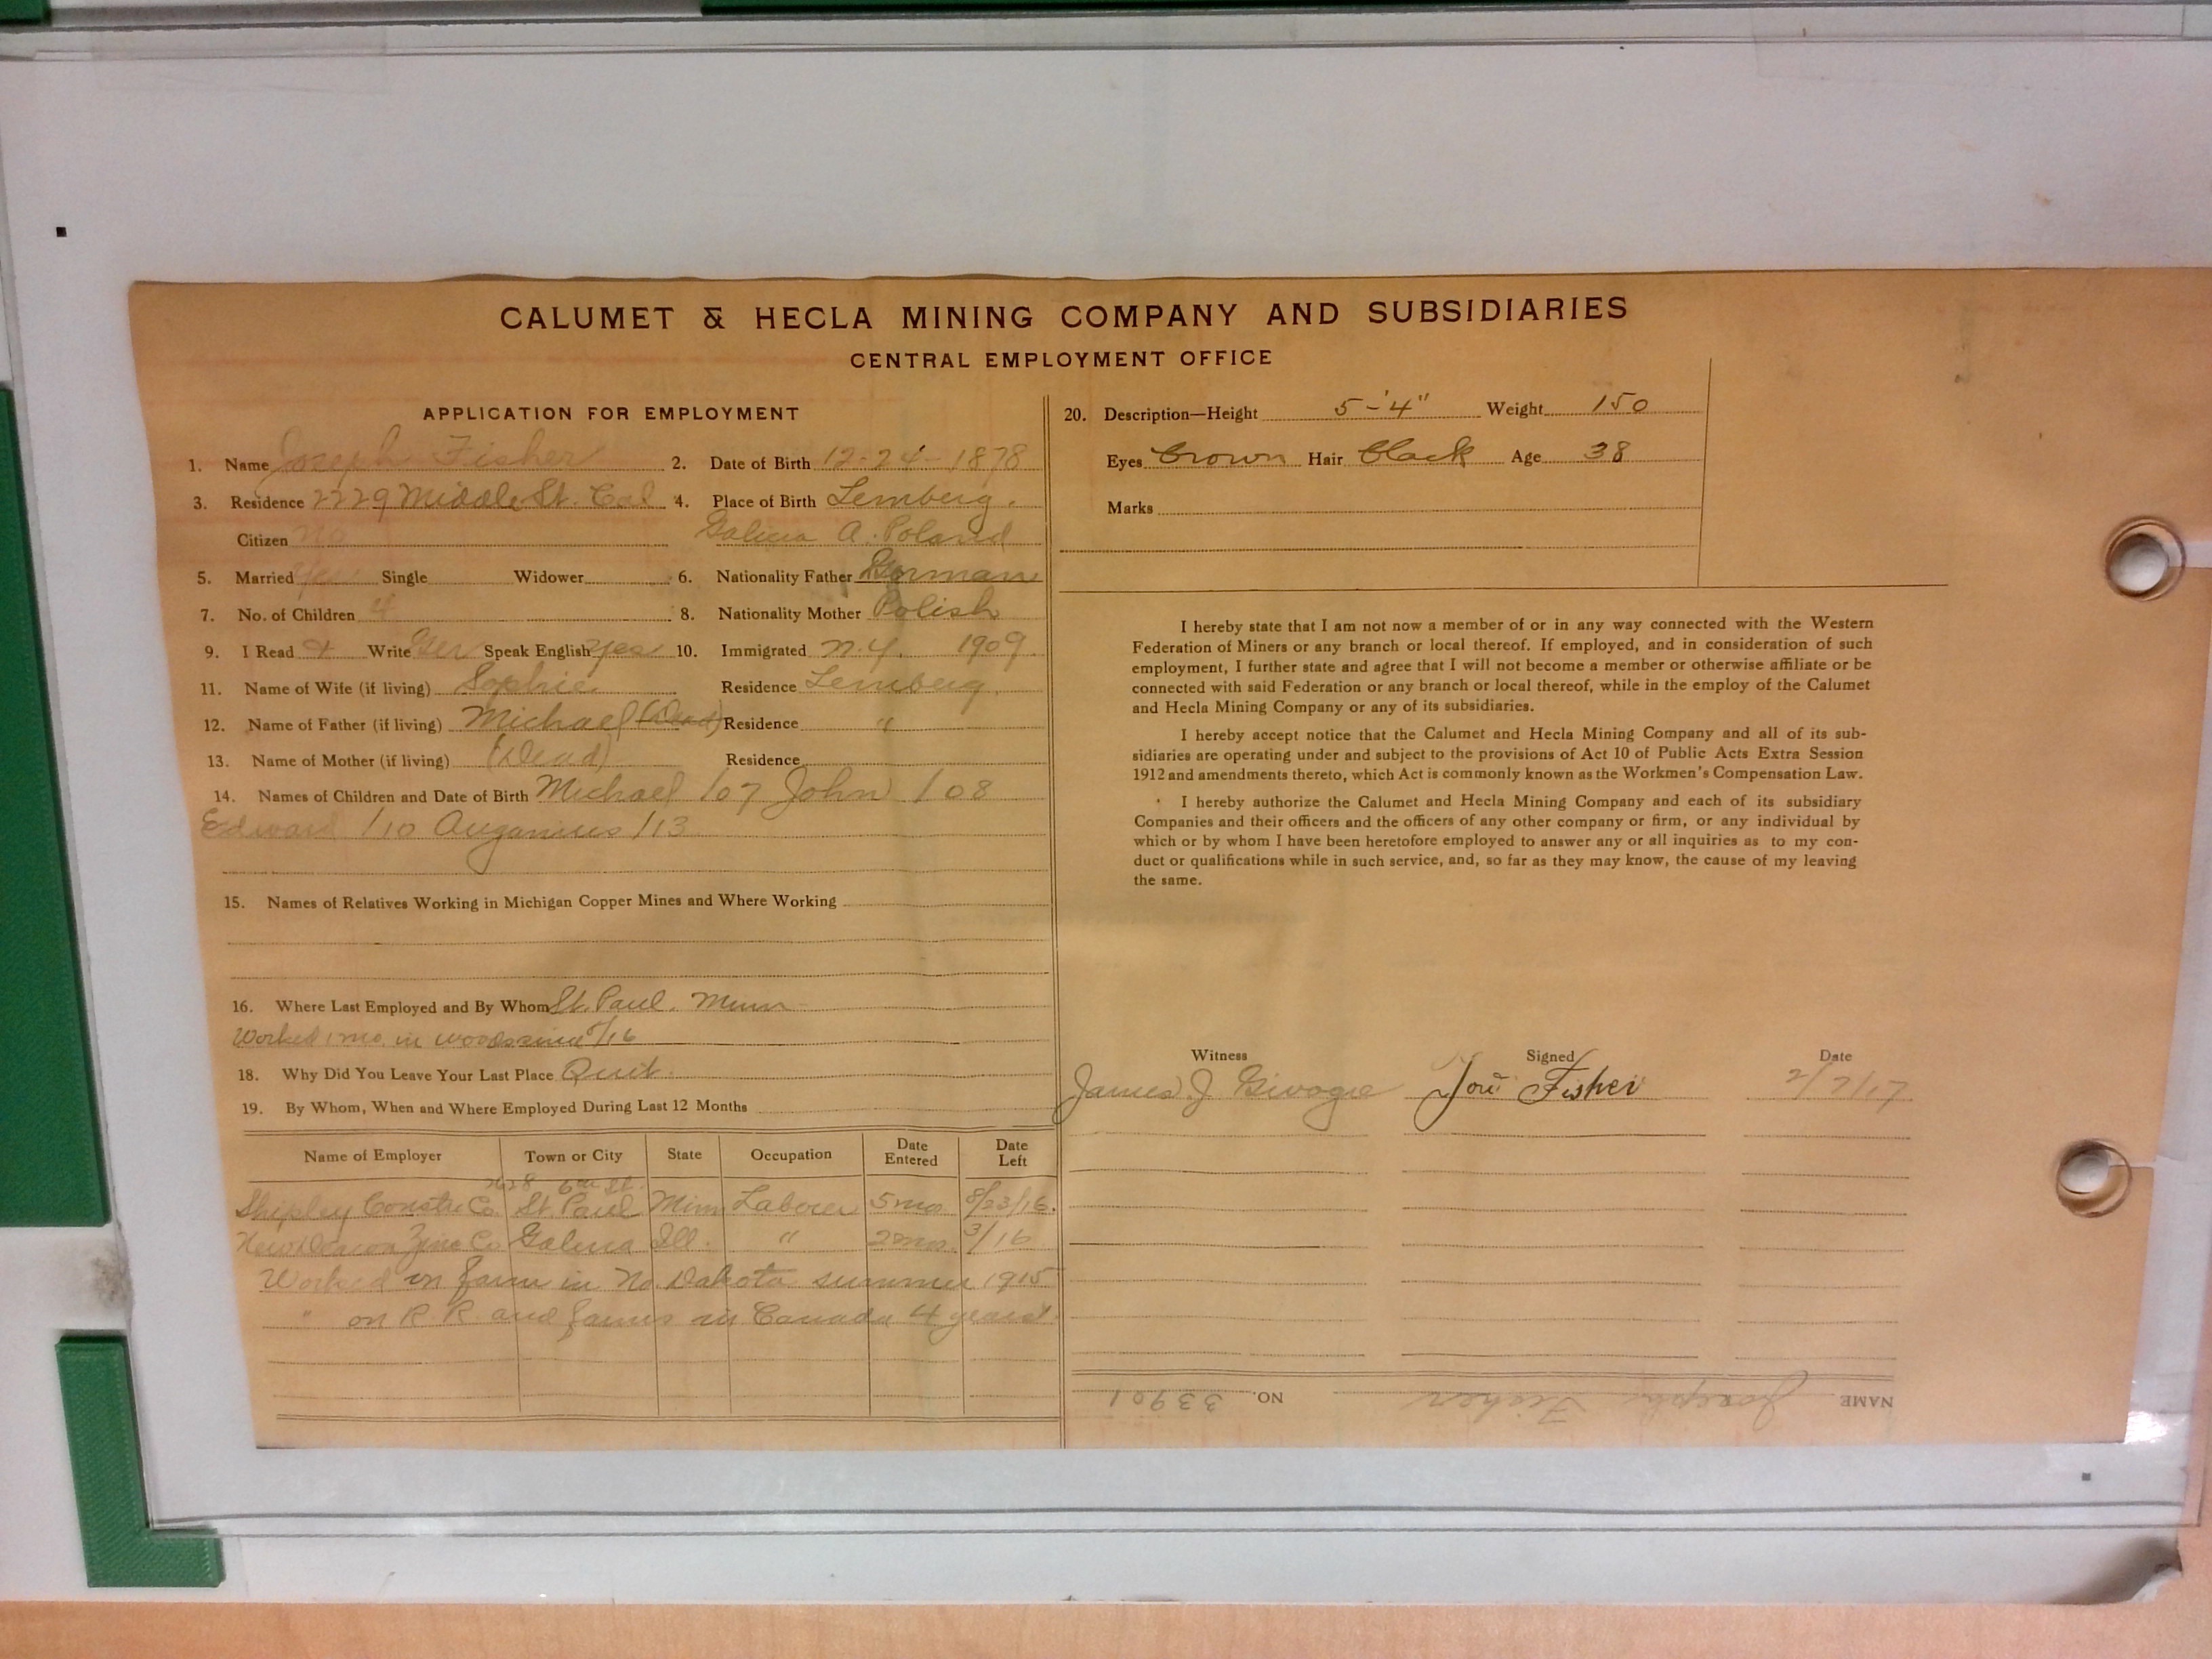 CALUMET & HECLA MINING COMPANY AND SUBSIDIARIES
CENTRAL EMPLOYMENT OFFICE
APPLICATION FOR EMPLOYMENT
1. Name Joseph Fisher 2. Date of Birth 12-24-1878
3. Residence 2229 Middle St. Cal 4. Place of Birth Lemberg.
Citizen No Galicia A. Poland
5. Married Yes Single Widower 6. Nationality Father German
7. No. of Children 4 8. Nationality Mother Polish
9. I Read & Write Ger Speak English yes 10. Immigrated N.Y. 1909.
11. Name of Wife (if living) Sophie Residence Lemberg.
12. Name of Father (if living) Michael (Dead) Residence "
13. Name of Mother (if living) (Dead) Residence
14. Names of Children and Date of Birth Michael /07 John /08
Edward /10 /13
15. Names of Relatives Working in Michigan Copper Mines and Where Working
16. Where Last Employed and By Whom St. Paul. Minn
Worked 1 mo. in woods since /16
18. Why Did You Leave Your Last Place Quit.
19. By Whom, When and Where Employed During Last 12 Months
Name of Employer Town or City State Occupation Date Entered Date Left
6th St.
Shipley Constr. Co. St. Paul Minn Laborer 5 mo. 8/23/16.
Zinc Co Galena Ill. " 2 mo. 3/16
Worked on farm in No. Dakota summer 1915
" on R R and farms in Canada 4 years.
20. Description—Height 5-'4" Weight 150
Eyes brown Hair black Age 38
Marks
I hereby state that I am not now a member of or in any way connected with the Western
Federation of Miners or any branch or local thereof. If employed, and in consideration of such
employment, I further state and agree that I will not become a member or otherwise affiliate or be
connected with said Federation or any branch or local thereof, while in the employ of the Calumet
and Hecla Mining Company or any of its subsidiaries.
I hereby accept notice that the Calumet and Hecla Mining Company and all of its sub-
sidiaries are operating under and subject to the provisions of Act 10 of Public Acts Extra Session
1912 and amendments thereto, which Act is commonly known as the Workmen's Compensation Law.
I hereby authorize the Calumet and Hecla Mining Company and each of its subsidiary
Companies and their officers and the officers of any other company or firm, or any individual by
which or by whom I have been heretofore employed to answer any or all inquiries as to my con-
duct or qualifications while in such service, and, so far as they may know, the cause of my leaving
the same.
Witness Signed Date
James J. Fisher 2/7/17
NAME Joseph Fisher NO. 33901